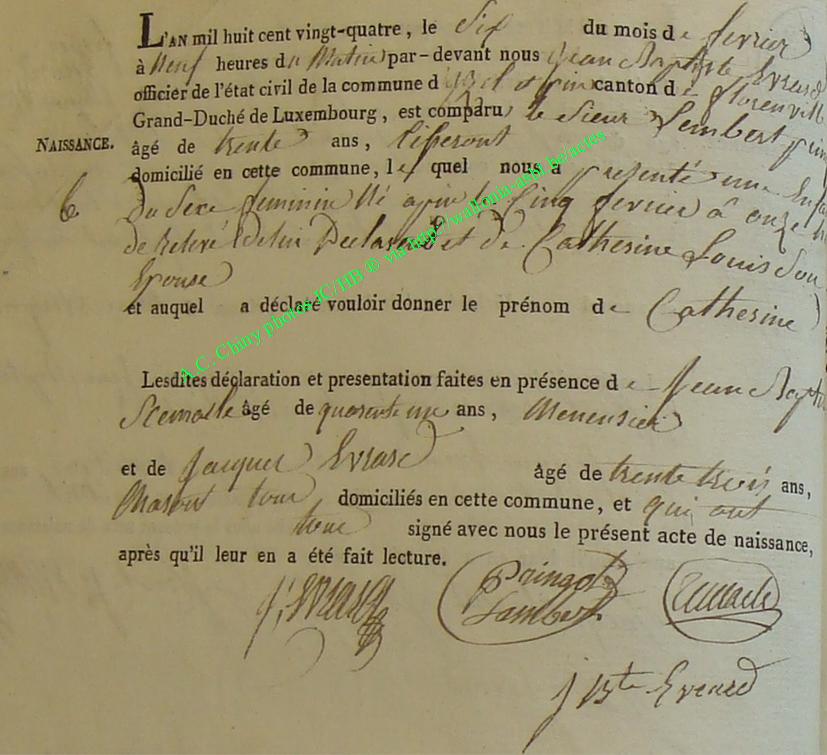 L'AN mil huit cent vingt-quatre, le Six du mois de fevrier
à Neuf heures du Matin par-devant nous Jean Baptiste Evrard
officier de l'état civil de la commune d canton de florenville
Grand-Duché de Luxembourg, est comparu le Sieur Lambert
NAISSANCE. âgé de trente ans, tisserant
domicilié en cette commune, le quel nous a presenté une Enfant
6 Du Sexe feminin Né le Cinq fevrier à onze h
de Relevé de lui Declarant et de Catherine Louis Son
Epouse
et auquel a déclaré vouloir donner le prénom de Catherine
A.C. Chiny photos JC/HB © via http://wallonia-asbl.be/actes
Lesdites déclaration et presentation faites en présence de Jean Bapti
âgé de quarente un ans, Menuisier
et de Jacques Evrard âgé de trente trois ans,
Masont tous domiciliés en cette commune, et qui ont
tous signé avec nous le présent acte de naissance,
après qu'il leur en a été fait lecture.
j: evrard Paingot
Lambert
j Bte Evrard